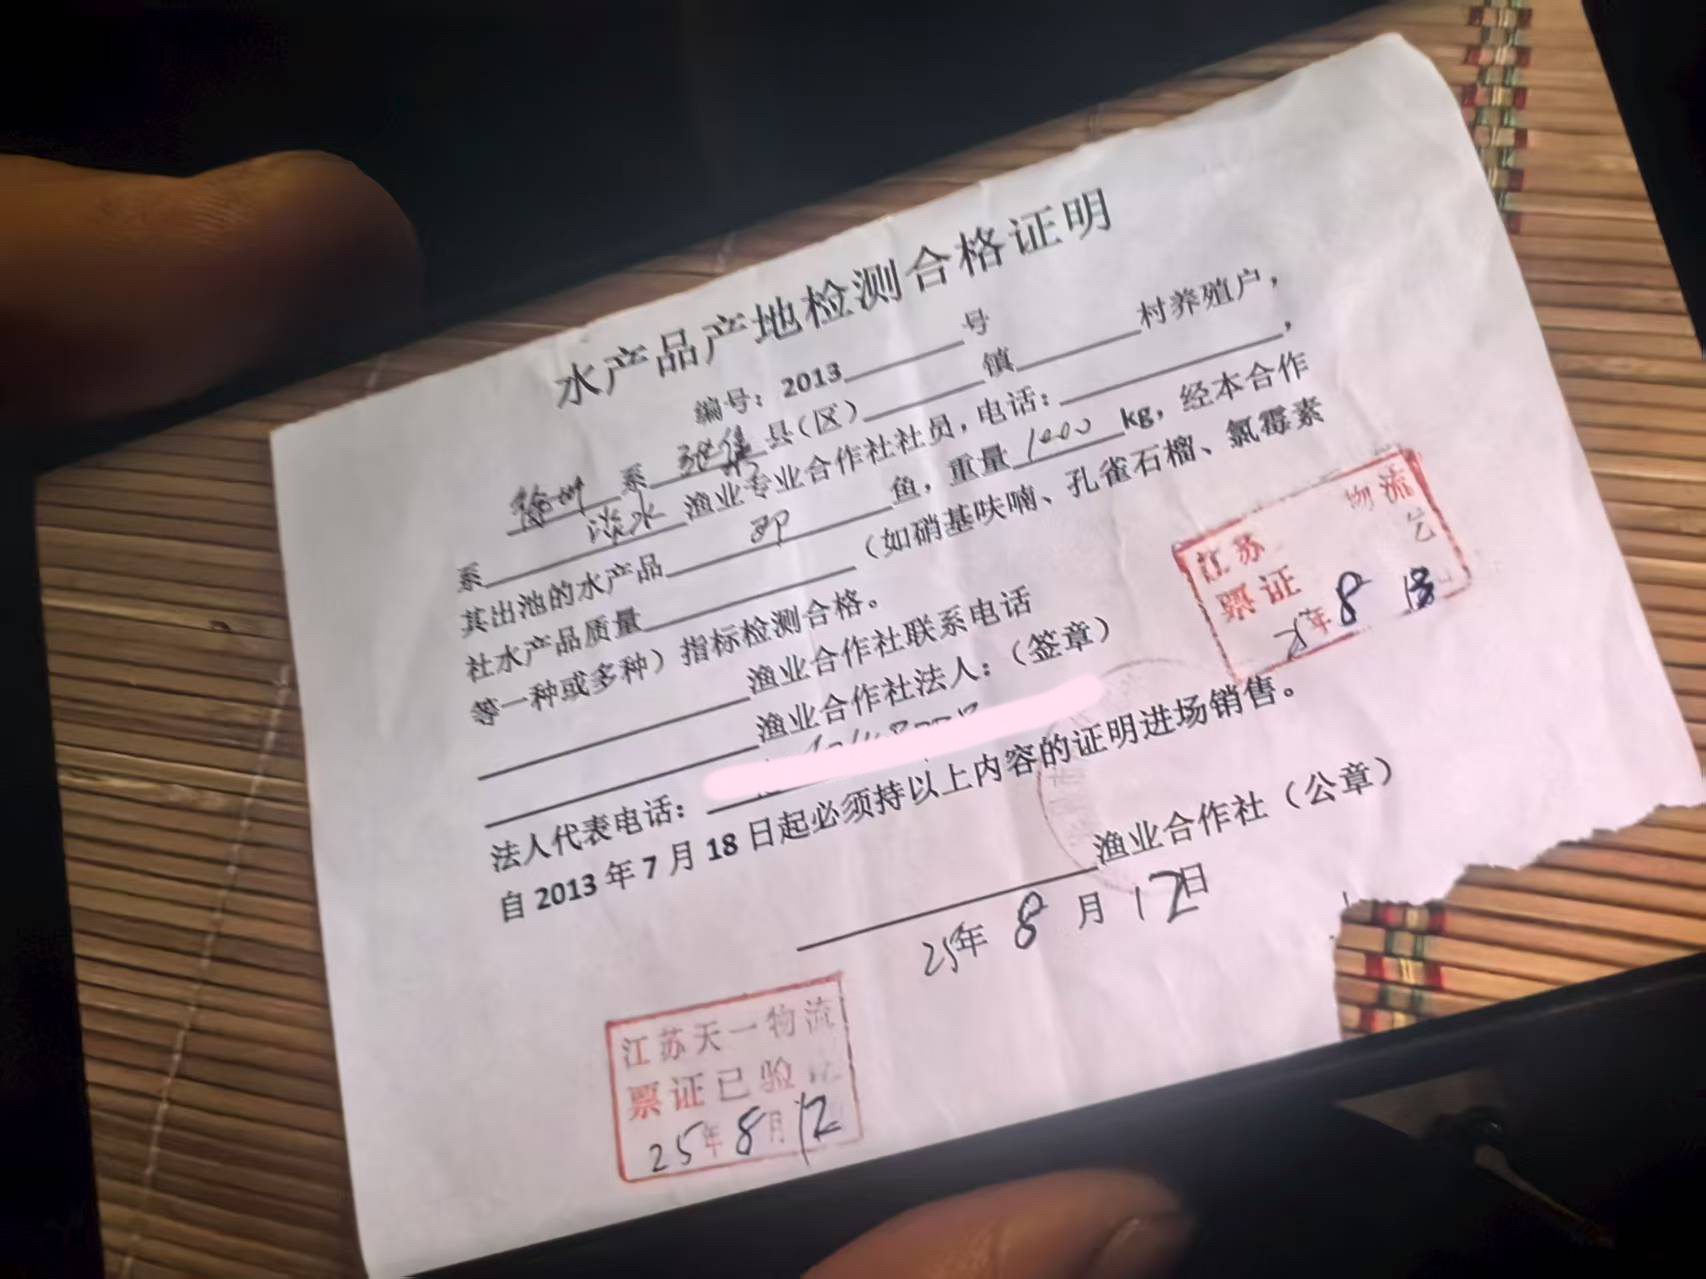 水产品产地检测合格证明
编号：2013______号
徐州 系 县（区）______镇______村养殖户，
系 淡水 渔业专业合作社社员，电话：______，
其出池的水产品______鱼，重量 1000 kg，经本合作
社水产品质量______（如硝基呋喃、孔雀石榴、氯霉素
等一种或多种）指标检测合格。
______渔业合作社联系电话
______渔业合作社法人：（签章）
法人代表电话：
自 2013 年 7 月 18 日起必须持以上内容的证明进场销售。
______渔业合作社（公章）
25年 8 月 12日
江苏 物流
票证
年 8
江苏天一物流
票证已验
25年8月12